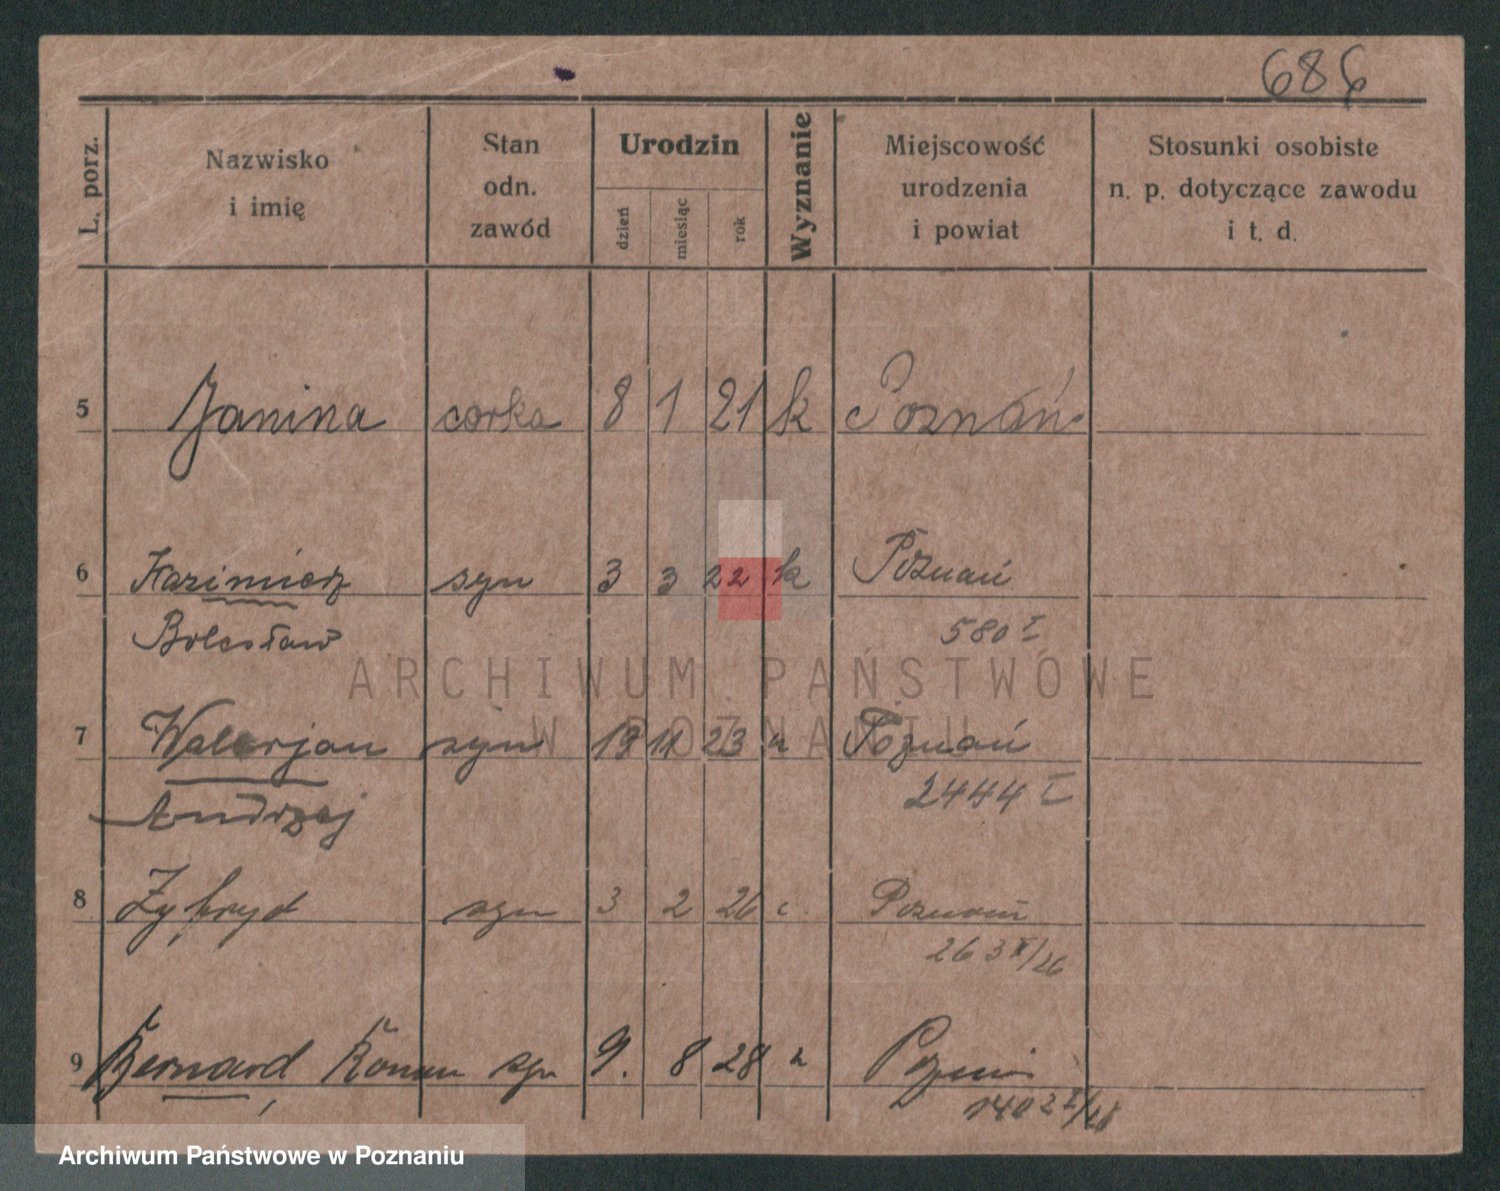 686
L. porz.
Nazwisko
i imię
Stan
odn.
zawód
Urodzin
dzień
miesiąc
rok
Wyznanie
Miejscowość
urodzenia
i powiat
Stosunki osobiste
n. p. dotyczące zawodu
i t. d.
5 Janina corka 8 1 21 k Poznań
6 Kazimierz syn 3 3 22 k Poznań
Bolesław 580 I
ARCHIWUM PAŃSTWOWE
W POZNANIU
7 Walerjan syn 19 11 23 " Poznań
Andrzej 2444 I
8 Zyfryd syn 3 2 26 Poznań
263 II/26
9 Bernard, Roman syn 9. 8 28 "
1402
Archiwum Państwowe w Poznaniu